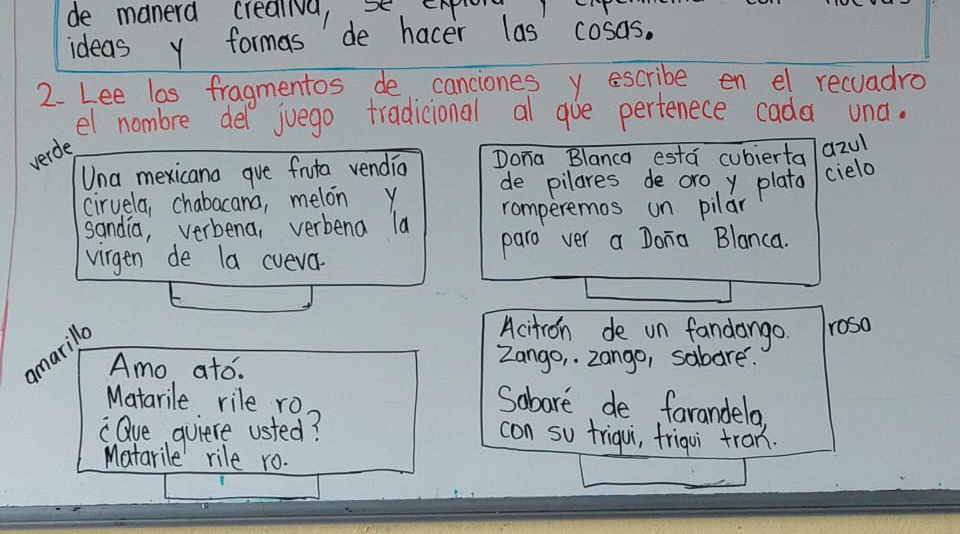 de manera creativa, se
ideas y formas de hacer las cosas.
2- Lee los fragmentos de canciones y escribe en el recuadro
el nombre del juego tradicional al que pertenece cada una.
verde
Una mexicana que fruta vendía
ciruela, chabacana, melón y
sandía, verbena, verbena la
virgen de la cueva.
Doña Blanca está cubierta
de pilares de oro y plata
romperemos un pilar
para ver a Doña Blanca.
azul
cielo
amarillo
Amo ató.
Matarile rile ro
¿Que quiere usted?
Matarile rile ro.
Acitrón de un fandango.
Zango,. zango, sabaré.
Sabaré de farandela,
con su triqui, triqui tran.
rosa